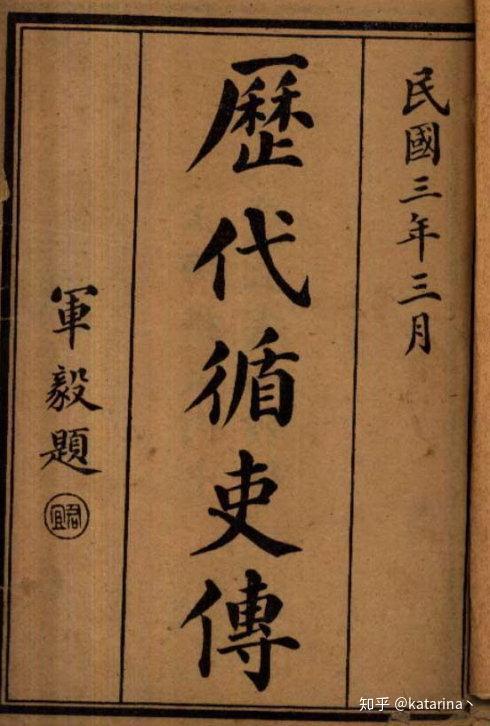 民國三年三月
歷代循吏傳
軍毅題
君宜
知乎 @katarina丶